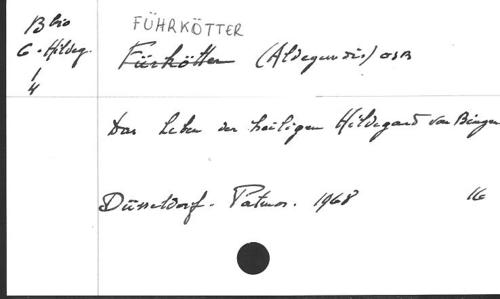 B bio
FÜHRKÖTTER
G. Hildeg.
Fürkötter (Aldegundis) OSB
1
4
Das Leben der heiligen Hildegard von Bingen
Düsseldorf. Patmos. 1968 16